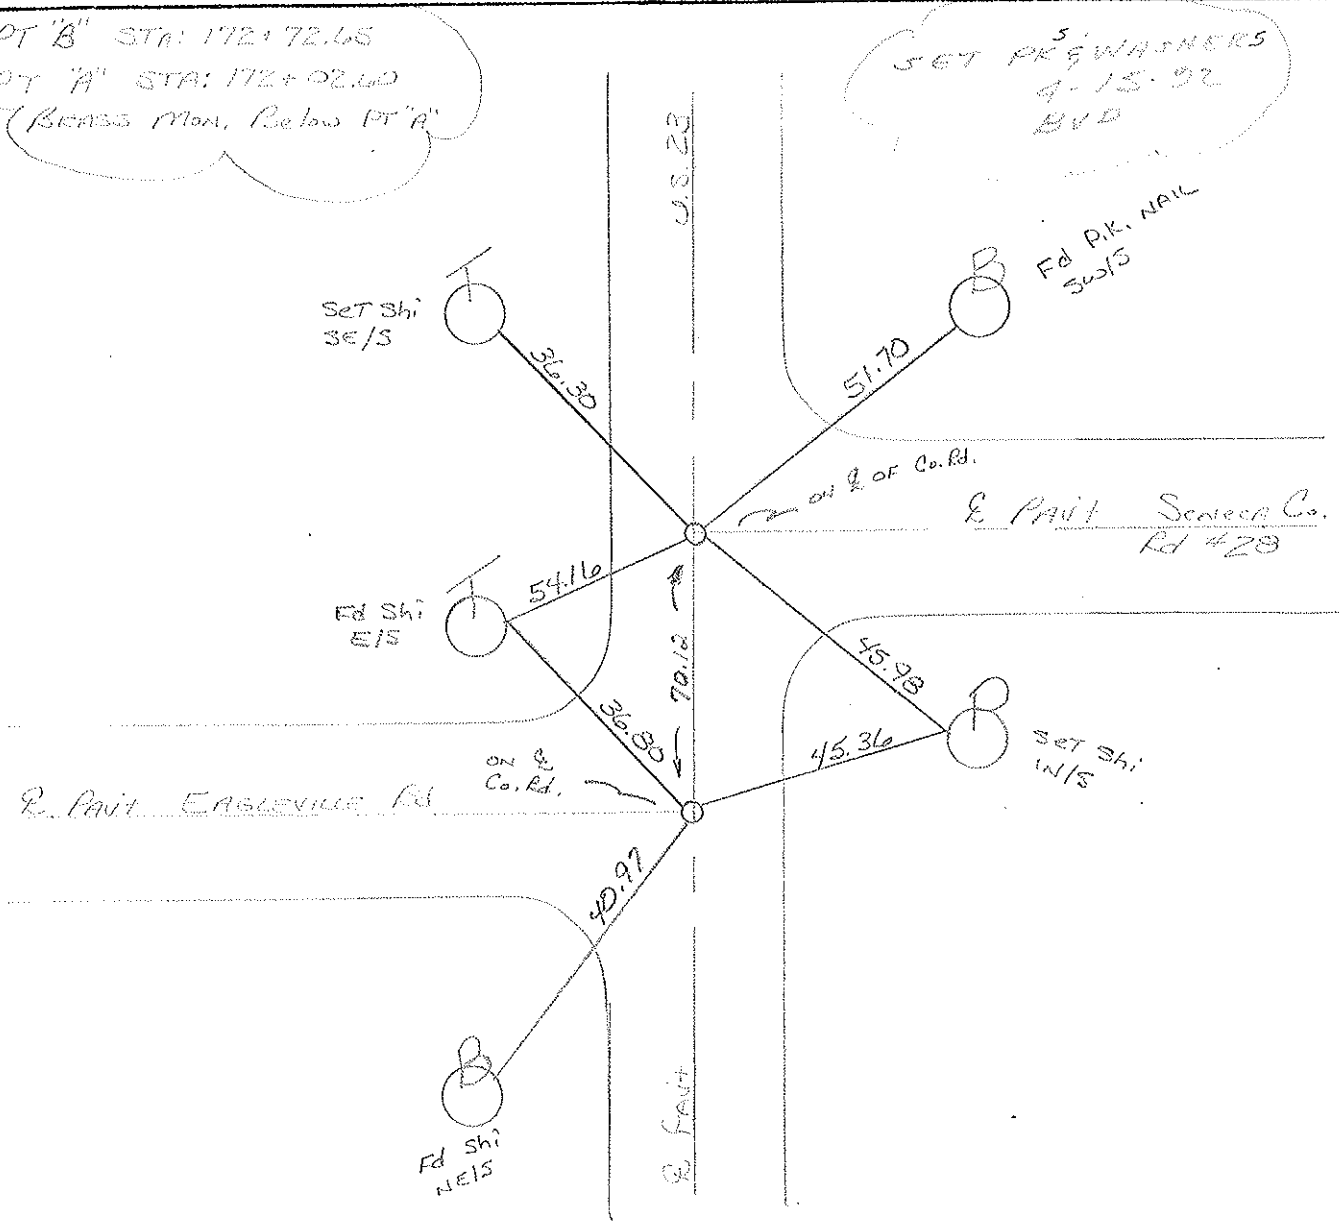 PT "B" STA: 172+72.65
PT "A" STA: 172+02.60
(BRASS MON. Below PT "A"
SET PK'S & WASHERS
4-15-92
U.S. 23
Fd P.K. NAIL
SW/S
SET Shi
SE/S
36.30
51.70
ON ℄ OF Co. Rd.
℄ PAV'T Seneca Co.
Rd #28
54.16
Fd Shi
E/S
70.12
45.98
36.80
45.36
SET Shi
W/S
ON ℄
Co. Rd.
℄ PAV'T EAGLEVILLE Rd
40.97
℄ PAV'T
Fd Shi
NE/S